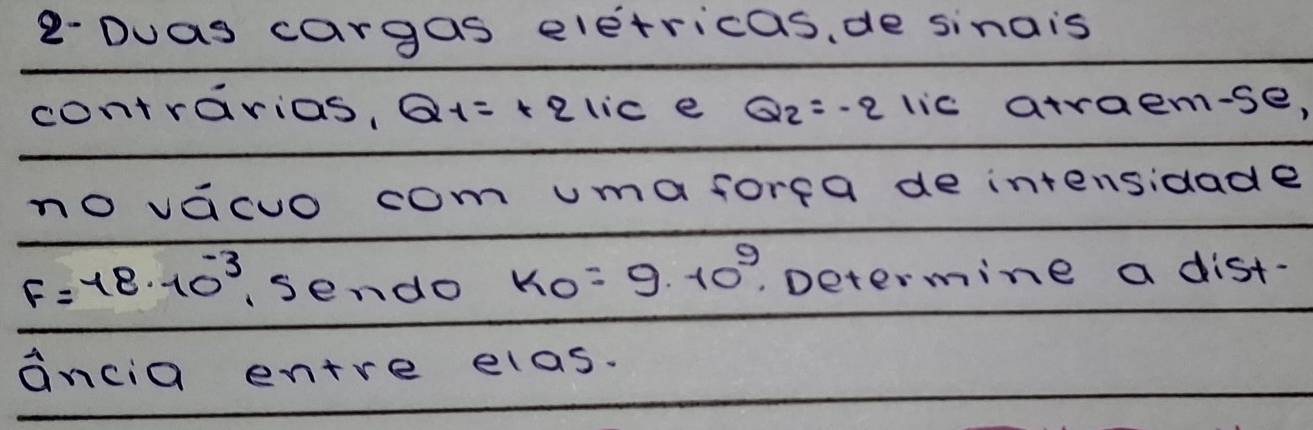 2- Duas cargas elétricas, de sinais
contrárias, Q1= +2 lic e Q2=-2 lic atraem-se,
no vácuo com uma força de intensidade
F= 18.10⁻³, Sendo KO= 9.10⁹. Determine a dist-
ância entre elas.